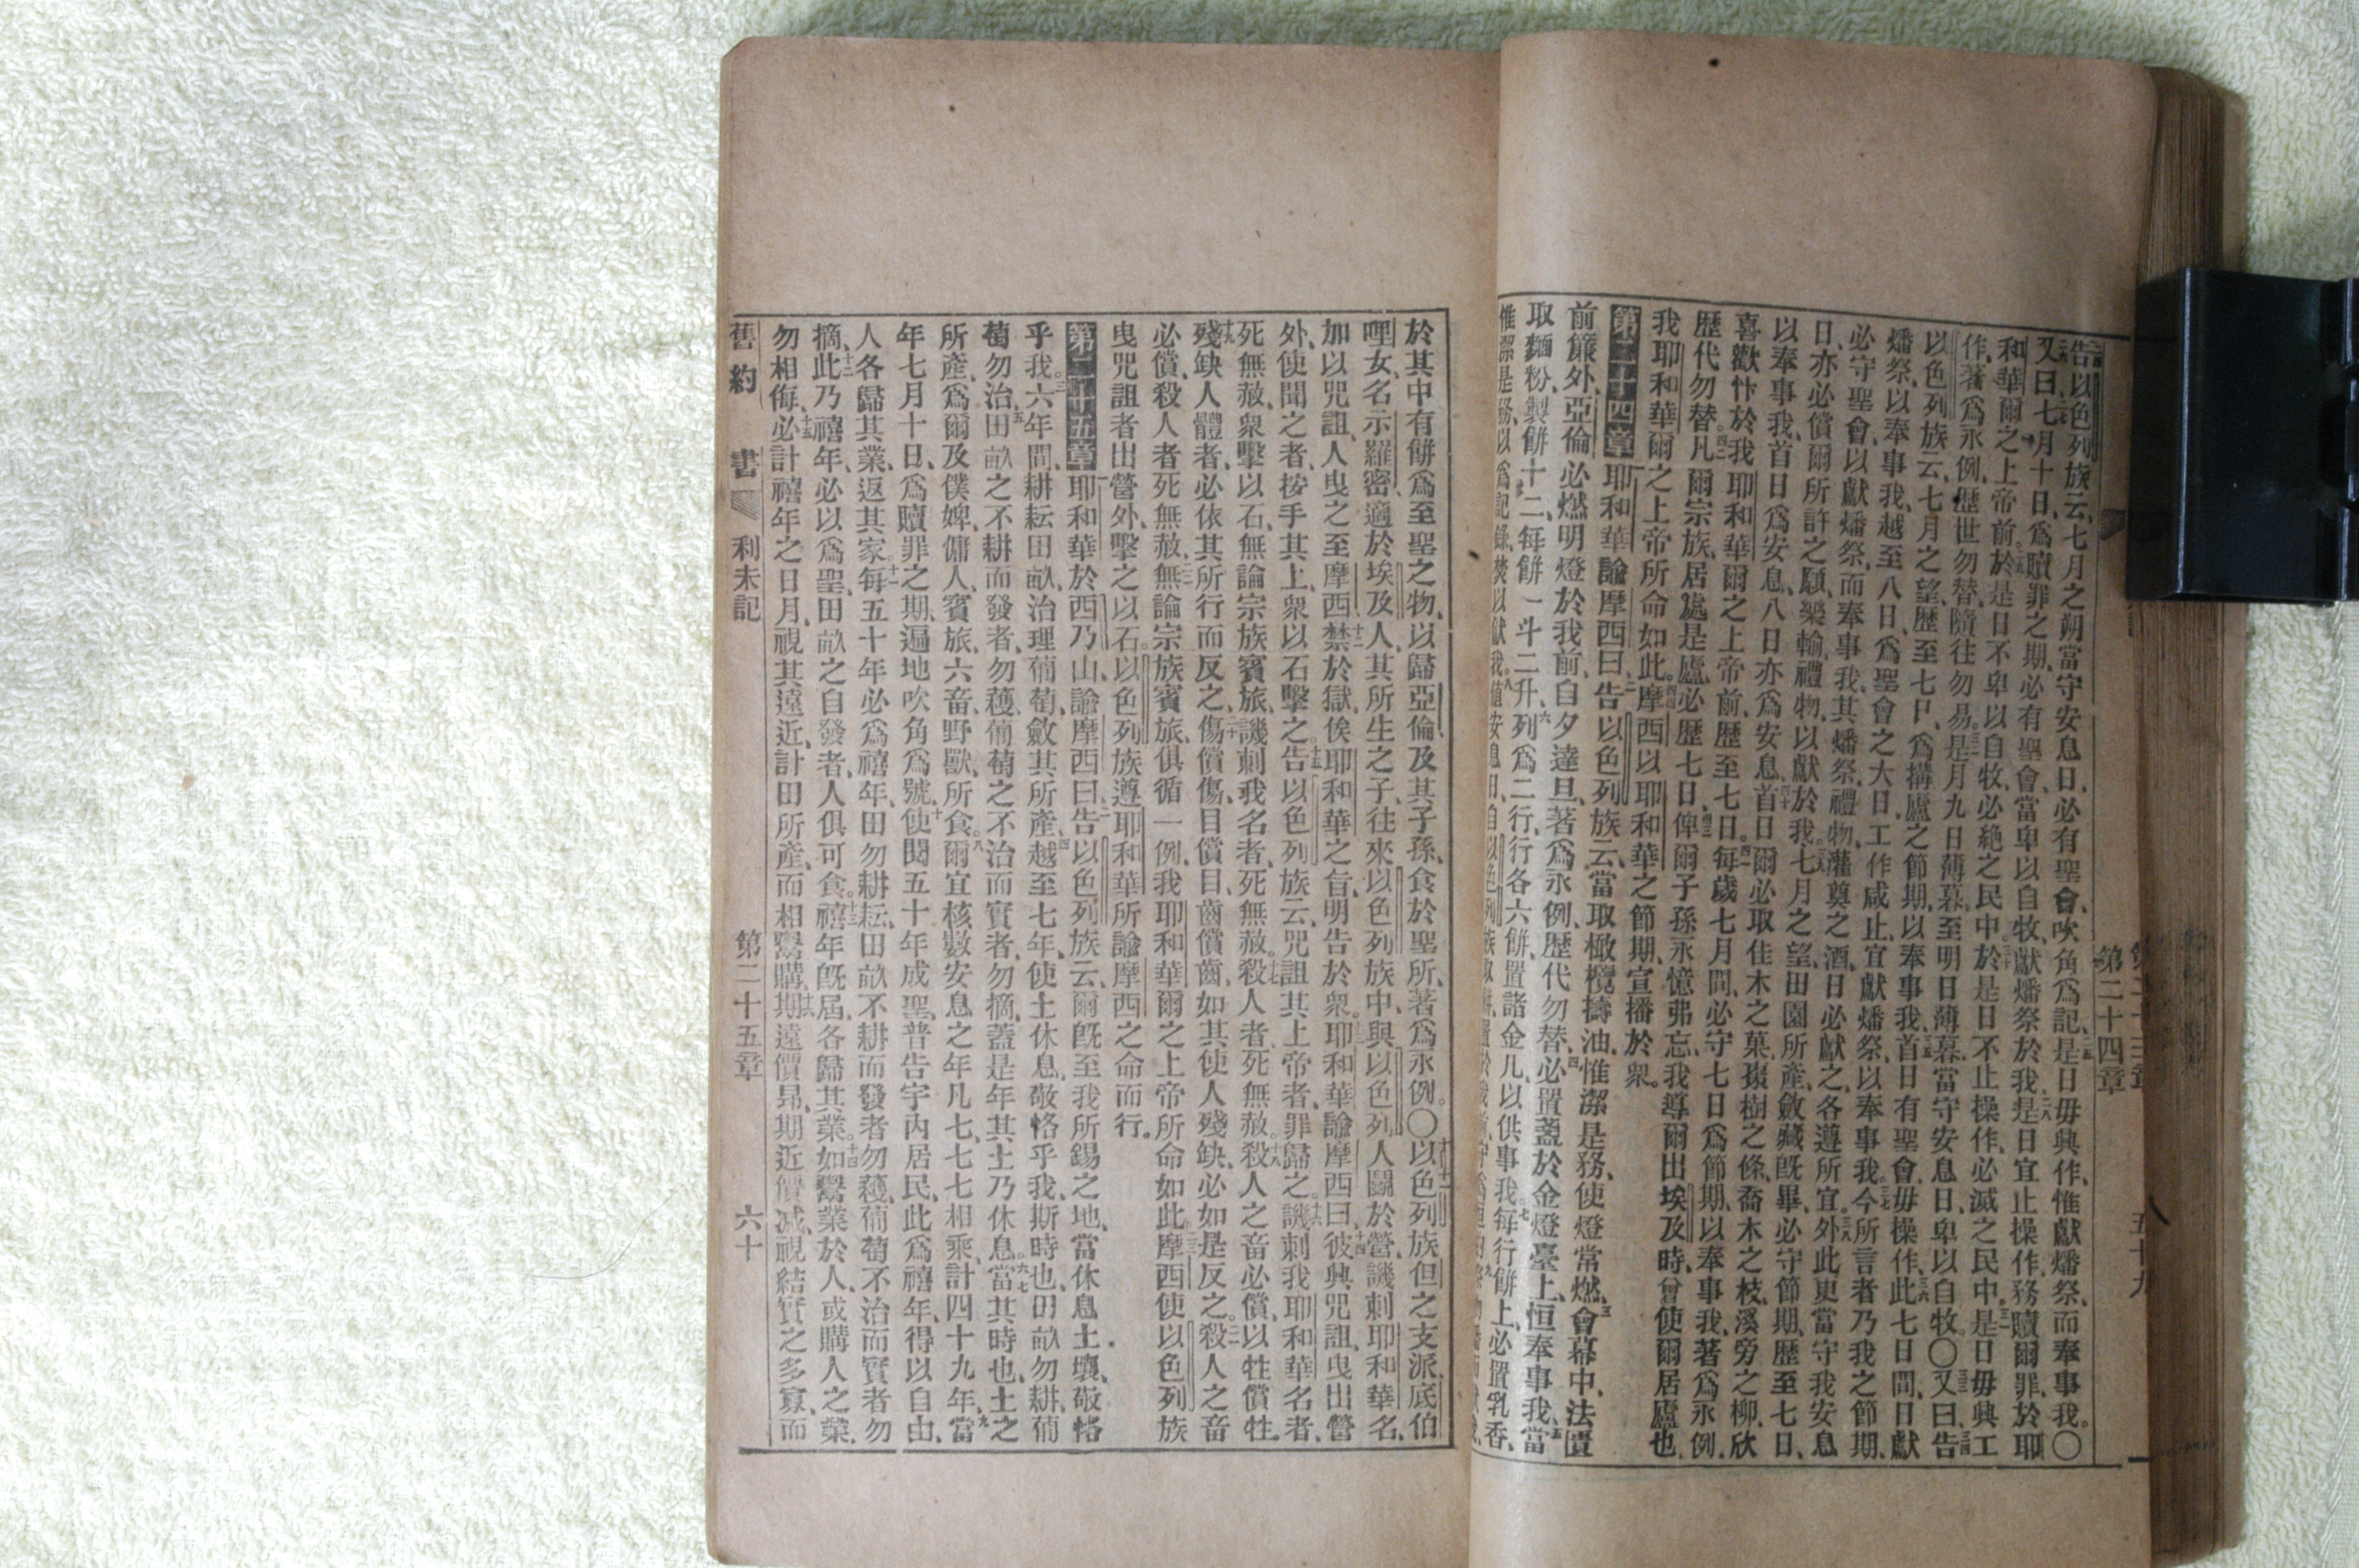 告以色列族云、七月之朔當守安息日、必有聖會、吹角爲記、是日毋興作、惟獻燔祭、而奉事我。〇
又曰、七月十日、爲贖罪之期、必有聖會、當卑以自牧、獻燔祭於我、是日宜止操作、務贖爾罪、於耶
和華爾之上帝前、於是日不卑以自牧、必絕之民中、於是日不止操作、必滅之民中。是日毋興工
作、著爲永例、歷世勿替、隨往勿易。是月九日薄暮、至明日薄暮、當守安息日、卑以自牧。〇又曰、告
以色列族云、七月之望、歷至七日、爲搆廬之節期、以奉事我、首日有聖會、毋操作、此七日間、日獻
燔祭、以奉事我、越至八日、爲聖會之大日、工作咸止、宜獻燔祭、以奉事我。今所言者、乃我之節期、
必守聖會、以獻燔祭、而奉事我、其燔祭、禮物、灌奠之酒、日必獻之、各遵所宜。外此更當守我安息
日、亦必償爾所許之願、樂輸禮物、以獻於我。七月之望、田園所產、斂藏旣畢、必守節期、歷至七日、
以奉事我、首日爲安息、八日亦爲安息、首日爾必取佳木之菓、棗樹之條、喬木之枝、溪旁之柳、欣
喜歡忭於我耶和華爾之上帝前、歷至七日。每歲七月間、必守七日爲節期、以奉事我、著爲永例、
歷代勿替。凡爾宗族、居處是廬、必歷七日、俾爾子孫永憶弗忘、我導爾出埃及時、曾使爾居廬也、
我耶和華爾之上帝所命如此。摩西以耶和華之節期、宣播於衆。
第二十四章 耶和華諭摩西曰、告以色列族云、當取橄欖擣油、惟潔是務、使燈常燃、會幕中、法匱
前簾外、亞倫必燃明燈於我前、自夕達旦、著爲永例、歷代勿替、必置盞於金燈臺上、恒奉事我、當
取麵粉、製餅十二、每餅一斗二升、列爲二行、行各六餅、置諸金几、以供事我。每行餅上、必置乳香、
惟潔是務、以爲記錄、焚以獻我。值安息日、自以色列族取餅
第二十四章
五十九
於其中有餅爲至聖之物、以歸亞倫及其子孫、食於聖所、著爲永例。〇以色列族但之支派、底伯
哩女、名示羅密、適於埃及人、其所生之子、往來以色列族中、與以色列人鬭於營、譏刺耶和華名、
加以咒詛、人曳之至摩西、禁於獄、俟耶和華之旨、明告於衆、耶和華諭摩西曰、彼興咒詛、曳出營
外、使聞之者、按手其上、衆以石擊之。告以色列族云、咒詛其上帝者、罪歸之。譏刺我耶和華名者、
死無赦、衆擊以石、無論宗族賓旅、譏刺我名者、死無赦。殺人者、死無赦。殺人之畜必償、以牲償牲。
殘缺人體者、必依其所行而反之、傷償傷、目償目、齒償齒、如其使人殘缺、必如是反之。殺人之畜
必償、殺人者死無赦、無論宗族賓旅、俱循一例、我耶和華爾之上帝所命如此。摩西使以色列族
曳咒詛者出營外、擊之以石。以色列族遵耶和華所諭摩西之命而行。
第二十五章 耶和華於西乃山、諭摩西曰、告以色列族云、爾旣至我所錫之地、當休息土壤、敬恪
乎我。六年間、耕耘田畝、治理葡萄、斂其所產、越至七年、使土休息、敬恪乎我、斯時也、田畝勿耕、葡
萄勿治、田畝之不耕而發者、勿穫、葡萄之不治而實者、勿摘、蓋是年其土乃休息。當其時也、土之
所產、爲爾及僕婢、傭人、賓旅、六畜、野獸、所食。爾宜核數安息之年凡七、七七相乘、計四十九年、當
年七月十日、爲贖罪之期、遍地吹角爲號、使閱五十年成聖、普告宇內居民、此爲禧年、得以自由、
人各歸其業、返其家。每五十年必爲禧年、田勿耕耘、田畝不耕而發者勿穫、葡萄不治而實者勿
摘、此乃禧年、必以爲聖、田畝之自發者、人俱可食。禧年旣屆、各歸其業。如鬻業於人、或購人之業、
勿相侮、必計禧年之日月、視其遠近、計田所產、而相鬻購、期遠價昂、期近價減、視結實之多寡、而
舊約 書 利未記 第二十五章 六十